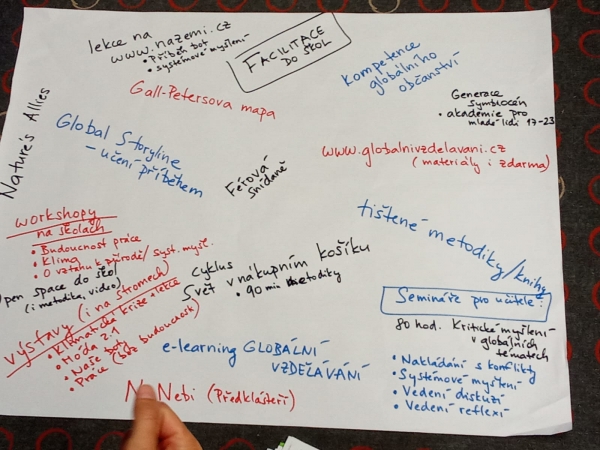 lekce na
www.nazemi.cz
• Příběh bot
• systémové myšlení
FACILITACE
DO ŠKOL
Kompetence
globálního
občanství
Gall-Petersova mapa
Generace
symbiocén
• akademie pro
mladé lidi 17-23
Nature's Allies
Global Storyline
- učení příběhem
Férová
snídaně
www.globalnivzdelavani.cz
(materiály i zdarma)
workshopy
na školách
• Budoucnost práce
• Klima
• O vztahu k přírodě/syst. myšl.
tištěné metodiky/knihy
pen space do škol
(i metodika, video)
cyklus
Svět v nákupním košíku
• 90 min metodiky
výstavy (i na stromech)
• Klimatická krize + lekce
• Móda 2.1
• Naše boty
• Práce (bez budoucnosti)
Semináře pro učitele:
80 hod. Kritické myšlení
v globálních
tématech
• Nakládání s konflikty
• Systémové myšlení
• Vedení diskuzí
• Vedení reflexí
e-learning GLOBÁLNÍ
VZDĚLÁVÁNÍ
Nebi (Předklášteří)